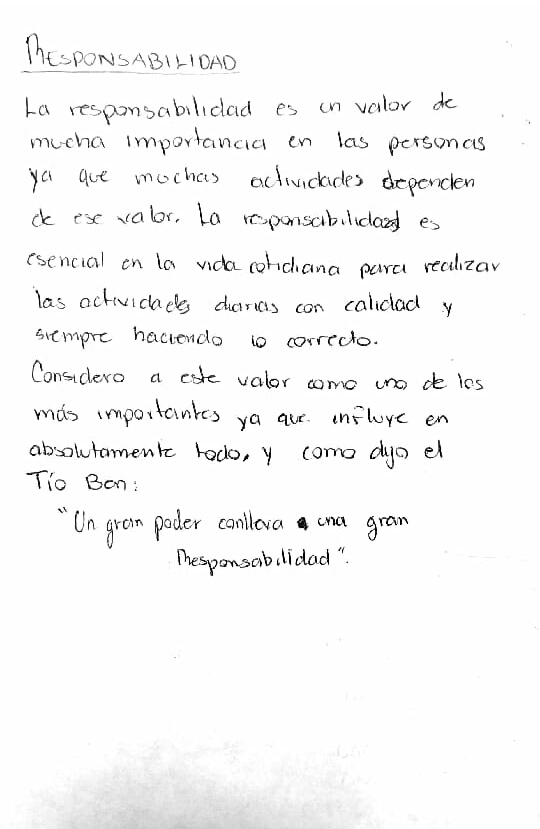 RESPONSABILIDAD
La responsabilidad es un valor de
mucha importancia en las personas
ya que muchas actividades dependen
de ese valor. La responsabilidad es
esencial en la vida cotidiana para realizar
las actividades diarias con calidad y
siempre haciendo lo correcto.
Considero a este valor como uno de los
más importantes ya que influye en
absolutamente todo, y como dijo el
Tío Ben:
"Un gran poder conlleva a una gran
Responsabilidad".